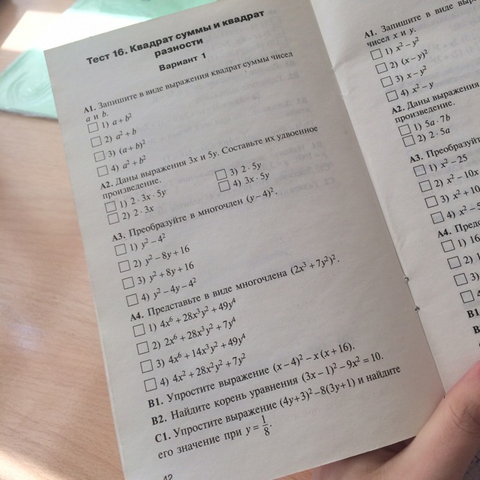 Тест 16. Квадрат суммы и квадрат
разности
Вариант 1
А1. Запишите в виде выражения квадрат суммы чисел
a и b.
1) a + b²
2) a² + b
3) (a + b)²
4) a² + b²
А2. Даны выражения 3x и 5y. Составьте их удвоенное
произведение.
1) 2 · 3x · 5y
2) 2 · 3x
3) 2 · 5y
4) 3x · 5y
А3. Преобразуйте в многочлен (y − 4)².
1) y² − 4²
2) y² − 8y + 16
3) y² + 8y + 16
4) y² − 4y − 4²
А4. Представьте в виде многочлена (2x³ + 7y²)².
1) 4x⁶ + 28x³y² + 49y⁴
2) 2x⁶ + 28x³y² + 7y⁴
3) 4x⁶ + 14x³y² + 49y⁴
4) 4x² + 28x²y² + 7y²
В1. Упростите выражение (x − 4)² − x(x + 16).
В2. Найдите корень уравнения (3x − 1)² − 9x² = 10.
С1. Упростите выражение (4y + 3)² − 8(3y + 1) и найдите
его значение при y = 1/8.
42
А1. Запишите в виде
чисел x и y.
1) x² − y²
2) (x − y)²
3) x − y²
4) x² − y
А2. Даны выражения
произведение.
1) 5a · 7b
2) 2 · 5a
А3.
1) x² − 25
2) x² − 10x
3) x² + 10
4) x² − 5
А4.
1) 16
2)
3)
4)
В1.
В2.